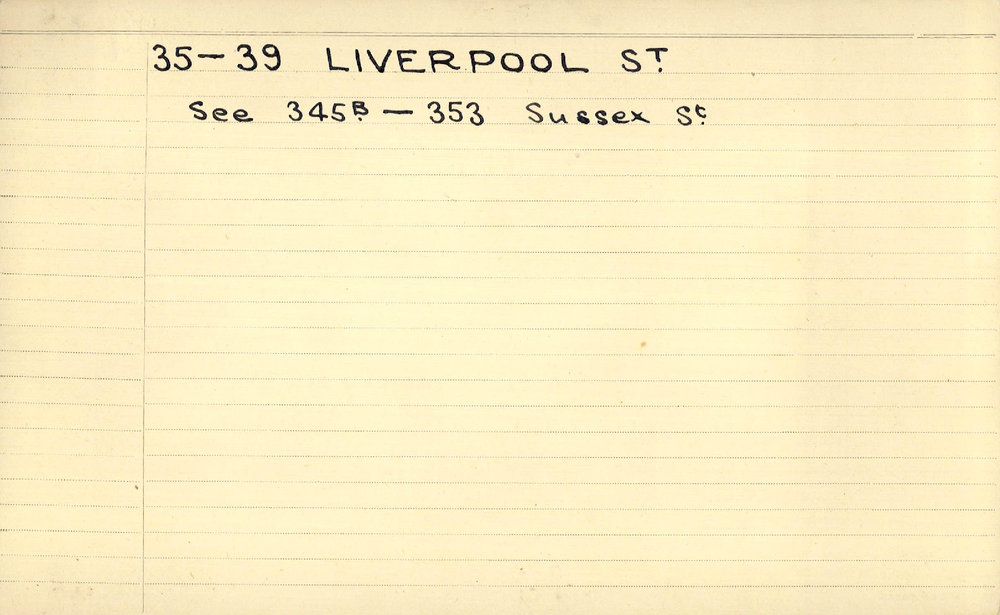 35–39 LIVERPOOL ST.
See 345B – 353 Sussex St.